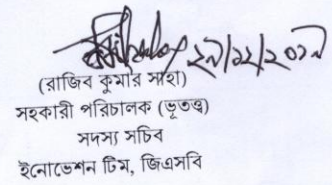 ২৯/১২/২০১৯
(রাজিব কুমার সাহা)
সহকারী পরিচালক (ভূতত্ত্ব)
সদস্য সচিব
ইনোভেশন টিম, জিএসবি